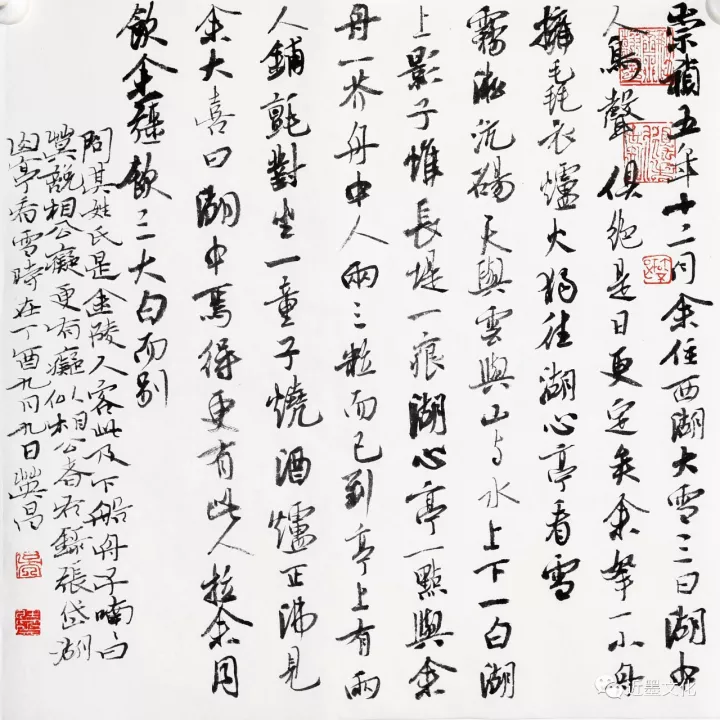 崇禎五年十二月余住西湖大雪三日湖中
人鳥聲俱絶是日更定矣余拏一小舟
擁毳衣爐火獨往湖心亭看雪
霧凇沆碭天與雲與山与水上下一白湖
上影子惟長堤一痕湖心亭一點與余
舟一芥舟中人兩三粒而已到亭上有兩
人鋪氈對坐一童子燒酒爐正沸見
余大喜曰湖中焉得更有此人拉余同
飲余强飲三大白而别
問其姓氏是金陵人客此及下船舟子喃喃曰
莫説相公癡更有癡似相公者右録張岱湖
心亭看雪時在丁酉九月九日
近墨文化